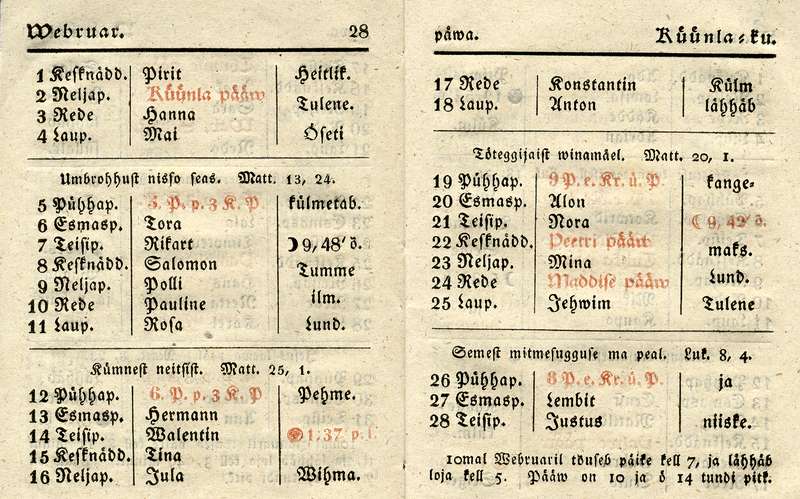 Webruar. 28
1 Kesknädd. Pirit Heitlik.
2 Neljap. Küünla pääw
3 Rede Hanna Tulene.
4 Laup. Mai Öseti
Umbrohhust nisso seas. Matt. 13, 24.
5 Pühhap. 5. P. p. 3 K. P külmetab.
6 Esmasp. Tora
7 Teisip. Rikart ☽ 9, 48' ö.
8 Kesknädd. Salomon Tumme
9 Neljap. Polli
10 Rede Pauline ilm.
11 Laup. Rosa Lund.
Kümnest neitsist. Matt. 25, 1.
12 Pühhap. 6. P. p. 3 K. P Pehme.
13 Esmasp. Hermann
14 Teisip. Walentin 1, 37 p. l.
15 Kesknädd. Tina
16 Neljap. Jula Wihma.
päwa. Küünla-ku.
17 Rede Konstantin Külm
18 Laup. Anton lähhäb
Töteggijaist winamäel. Matt. 20, 1.
19 Pühhap. 9 P. e. Kr. ü. P. kange-
20 Esmasp. Alon
21 Teisip. Nora ☾ 9, 42' ö.
22 Kesknädd. Peetri pääw
23 Neljap. Mina maks.
24 Rede Maddise pääw Lund.
25 Laup. Jehwim Tulene
Semest mitmesugguse ma peal. Luk. 8, 4.
26 Pühhap. 8 P. e. Kr. ü. P. ja
27 Esmasp. Lembit
28 Teisip. Justus niiske.
10mal Webruaril töuseb päike kell 7, ja lähhäb
loja kell 5. Pääw on 10 ja ö 14 tundi pitk.